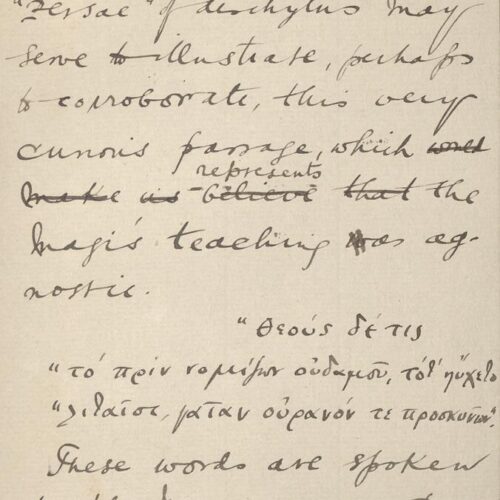 "Persae" of Aeschylus may
serve to illustrate, perhaps
to corroborate, this very
curious passage, which
represents
make us believe that the
Magi's teaching was ag-
nostic.
"θεοὺς δέ τις
"τὸ πρὶν νομίζων οὐδαμοῦ, τότ' ηὔχετο
"λιταῖσι, γαῖαν οὐρανόν τε προσκυνῶν".
These words are spoken